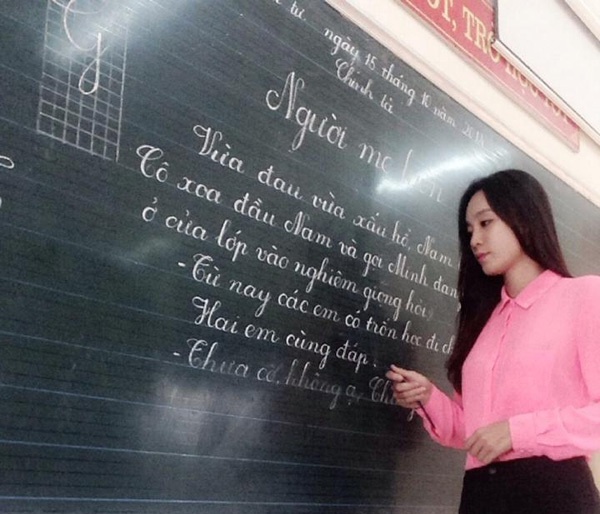 G
tư ngày 15 tháng 10 năm
Chính tả
Người mẹ hiền
Vừa đau vừa xấu hổ, Nam
Cô xoa đầu Nam và gọi Minh đang
ở cửa lớp vào nghiêm giọng hỏi
- Từ nay các em có trốn học đi
Hai em cùng đáp.
- Thưa cô, không ạ.
TRÒ HỌC TỐT